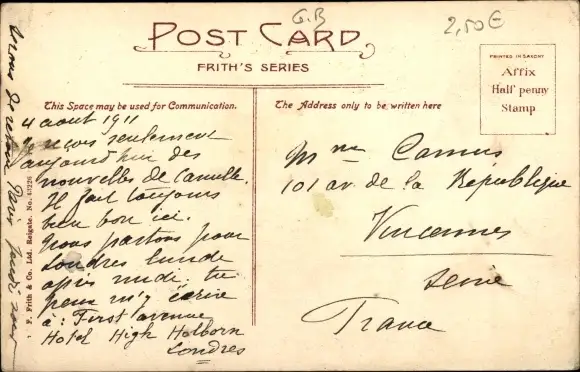 G.B
2,50€
POST CARD
FRITH'S SERIES
PRINTED IN SAXONY
Affix
Half penny
Stamp
This Space may be used for Communication.
The Address only to be written here
4 aout 1911
Je reçois seulement
aujourd'hui des
nouvelles de Camille.
Il fait toujours
bien bon ici.
Nous partons pour
Londres lundi
après midi. tu
peux m'y écrire
à : First avenue
Hotel High Holborn
Londres
Mme Camus
101 av. de la République
Vincennes
Seine
France
F. Frith & Co., Ltd. Reigate. No.
de retour Paris